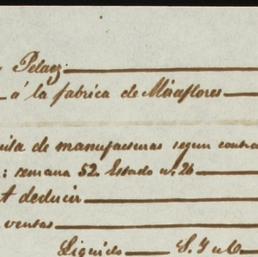 Pelaez
á la fabrica de Miraflores
de manufacturas segun
: semana 52. Estado nº. 26
A deducir
ventas
Liquido S. I u O